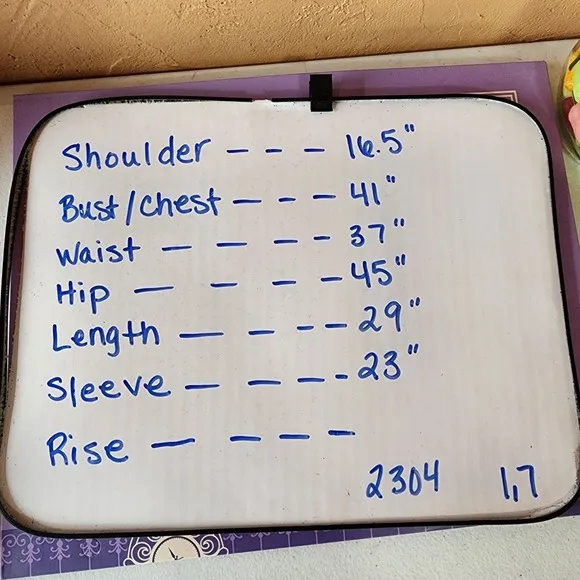 Shoulder - - - 16.5"
Bust/chest - - - 41"
Waist - - - - 37"
Hip - - - - 45"
Length - - - - 29"
Sleeve - - - - 23"
Rise - - - -
2304 1,7